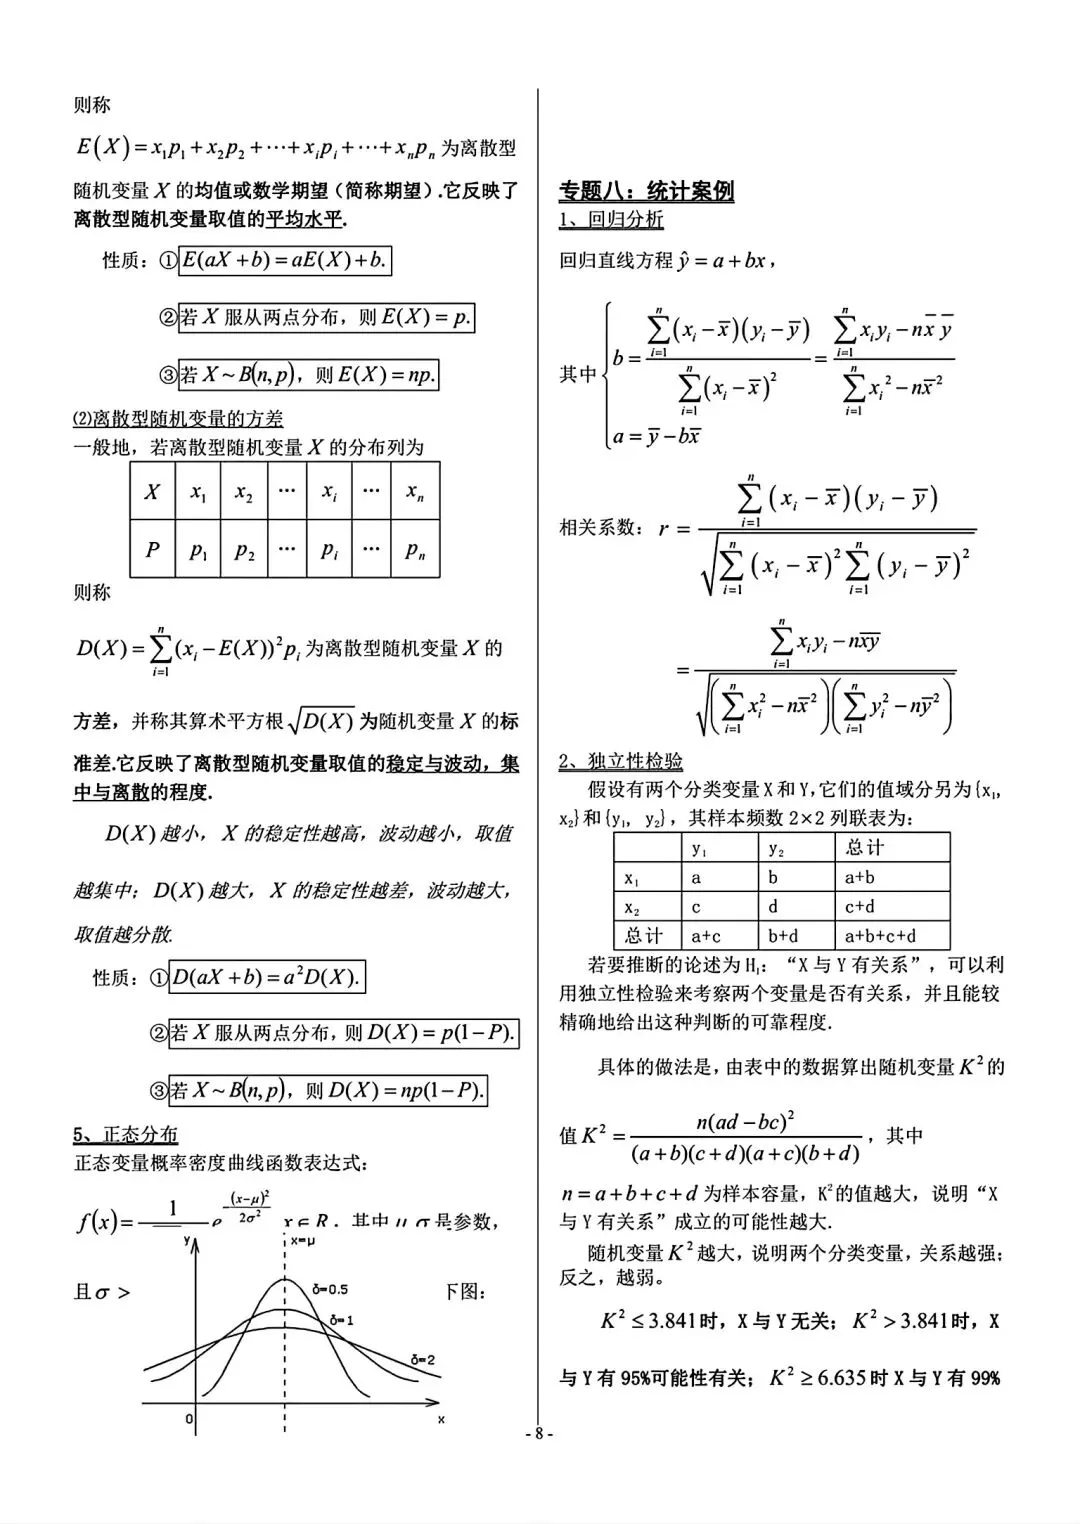 则称
E(X)=x₁p₁+x₂p₂+⋯+xᵢpᵢ+⋯+xₙpₙ 为离散型
随机变量 X 的均值或数学期望（简称期望）.它反映了
离散型随机变量取值的平均水平.
性质：①E(aX+b)=aE(X)+b.
②若 X 服从两点分布，则 E(X)=p.
③若 X~B(n,p)，则 E(X)=np.
⑵离散型随机变量的方差
一般地，若离散型随机变量 X 的分布列为
X x₁ x₂ … xᵢ … xₙ
P p₁ p₂ … pᵢ … pₙ
则称
D(X)=∑ⁿᵢ₌₁(xᵢ−E(X))²pᵢ 为离散型随机变量 X 的
方差，并称其算术平方根√D(X) 为随机变量 X 的标
准差.它反映了离散型随机变量取值的稳定与波动，集
中与离散的程度.
D(X) 越小，X 的稳定性越高，波动越小，取值
越集中；D(X) 越大，X 的稳定性越差，波动越大，
取值越分散.
性质：①D(aX+b)=a²D(X).
②若 X 服从两点分布，则 D(X)=p(1−P).
③若 X~B(n,p)，则 D(X)=np(1−P).
5、正态分布
正态变量概率密度曲线函数表达式：
f(x)= 1 e (x-μ)²/2σ² x∈R，其中 μ,σ 是参数，
且 σ > 下图：
y x=μ
δ=0.5
δ=1
δ=2
0 x
专题八：统计案例
1、回归分析
回归直线方程 ŷ=a+bx，
其中 { b = ∑ⁿᵢ₌₁(xᵢ−x̅)(yᵢ−y̅) / ∑ⁿᵢ₌₁(xᵢ−x̅)² = (∑ⁿᵢ₌₁xᵢyᵢ−nx̅ y̅) / (∑ⁿᵢ₌₁xᵢ²−nx̅²)
a=y̅−bx̅
相关系数：r = ∑ⁿᵢ₌₁(xᵢ−x̅)(yᵢ−y̅) / √(∑ⁿᵢ₌₁(xᵢ−x̅)²∑ⁿᵢ₌₁(yᵢ−y̅)²)
= (∑ⁿᵢ₌₁xᵢyᵢ−nx̅y̅) / √((∑ⁿᵢ₌₁xᵢ²−nx̅²)(∑ⁿᵢ₌₁yᵢ²−ny̅²))
2、独立性检验
假设有两个分类变量 X 和 Y，它们的值域分另为{x₁,
x₂}和{y₁, y₂}，其样本频数 2×2 列联表为：
y₁ y₂ 总计
x₁ a b a+b
x₂ c d c+d
总计 a+c b+d a+b+c+d
若要推断的论述为 H₁：“X 与 Y 有关系”，可以利
用独立性检验来考察两个变量是否有关系，并且能较
精确地给出这种判断的可靠程度.
具体的做法是，由表中的数据算出随机变量 K² 的
值 K² = n(ad−bc)² / (a+b)(c+d)(a+c)(b+d)，其中
n=a+b+c+d 为样本容量，K²的值越大，说明“X
与 Y 有关系”成立的可能性越大.
随机变量 K² 越大，说明两个分类变量，关系越强；
反之，越弱。
K² ≤ 3.841时，X 与 Y 无关；K² > 3.841时，X
与 Y 有 95%可能性有关；K² ≥ 6.635 时 X 与 Y 有 99%
- 8 -